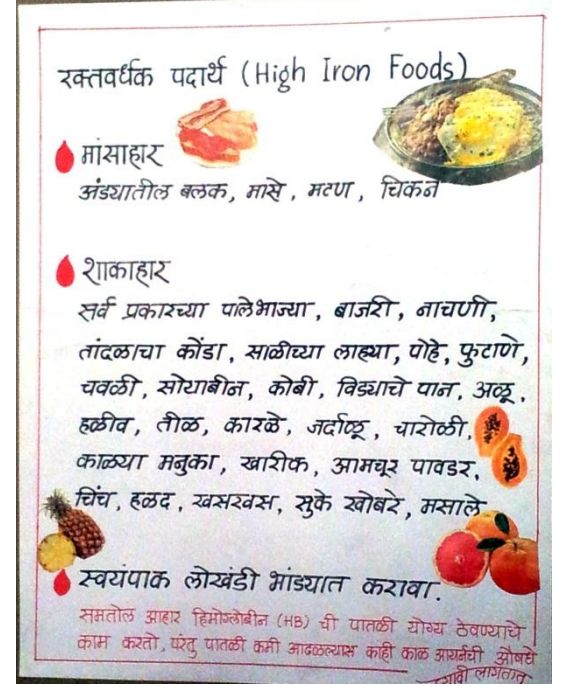 रक्तवर्धक पदार्थ (High Iron Foods)
मांसाहार
अंड्यातील बलक, मासे, मटण, चिकन
शाकाहार
सर्व प्रकारच्या पालेभाज्या, बाजरी, नाचणी,
तांदळाचा कोंडा, साळीच्या लाह्या, पोहे, फुटाणे,
चवळी, सोयाबीन, कोबी, विड्याचे पान, अळू,
हळीव, तीळ, कारळे, जर्दाळू, चारोळी,
काळया मनुका, खारीक, आमचूर पावडर,
चिंच, हळद, खसखस, सुके खोबरे, मसाले
स्वयंपाक लोखंडी भांड्यात करावा.
समतोल आहार हिमोग्लोबीन (HB) ची पातळी योग्य ठेवण्याचे
काम करतो, परंतु पातळी कमी आढळल्यास काही काळ आयर्नची औषधे
लागतात